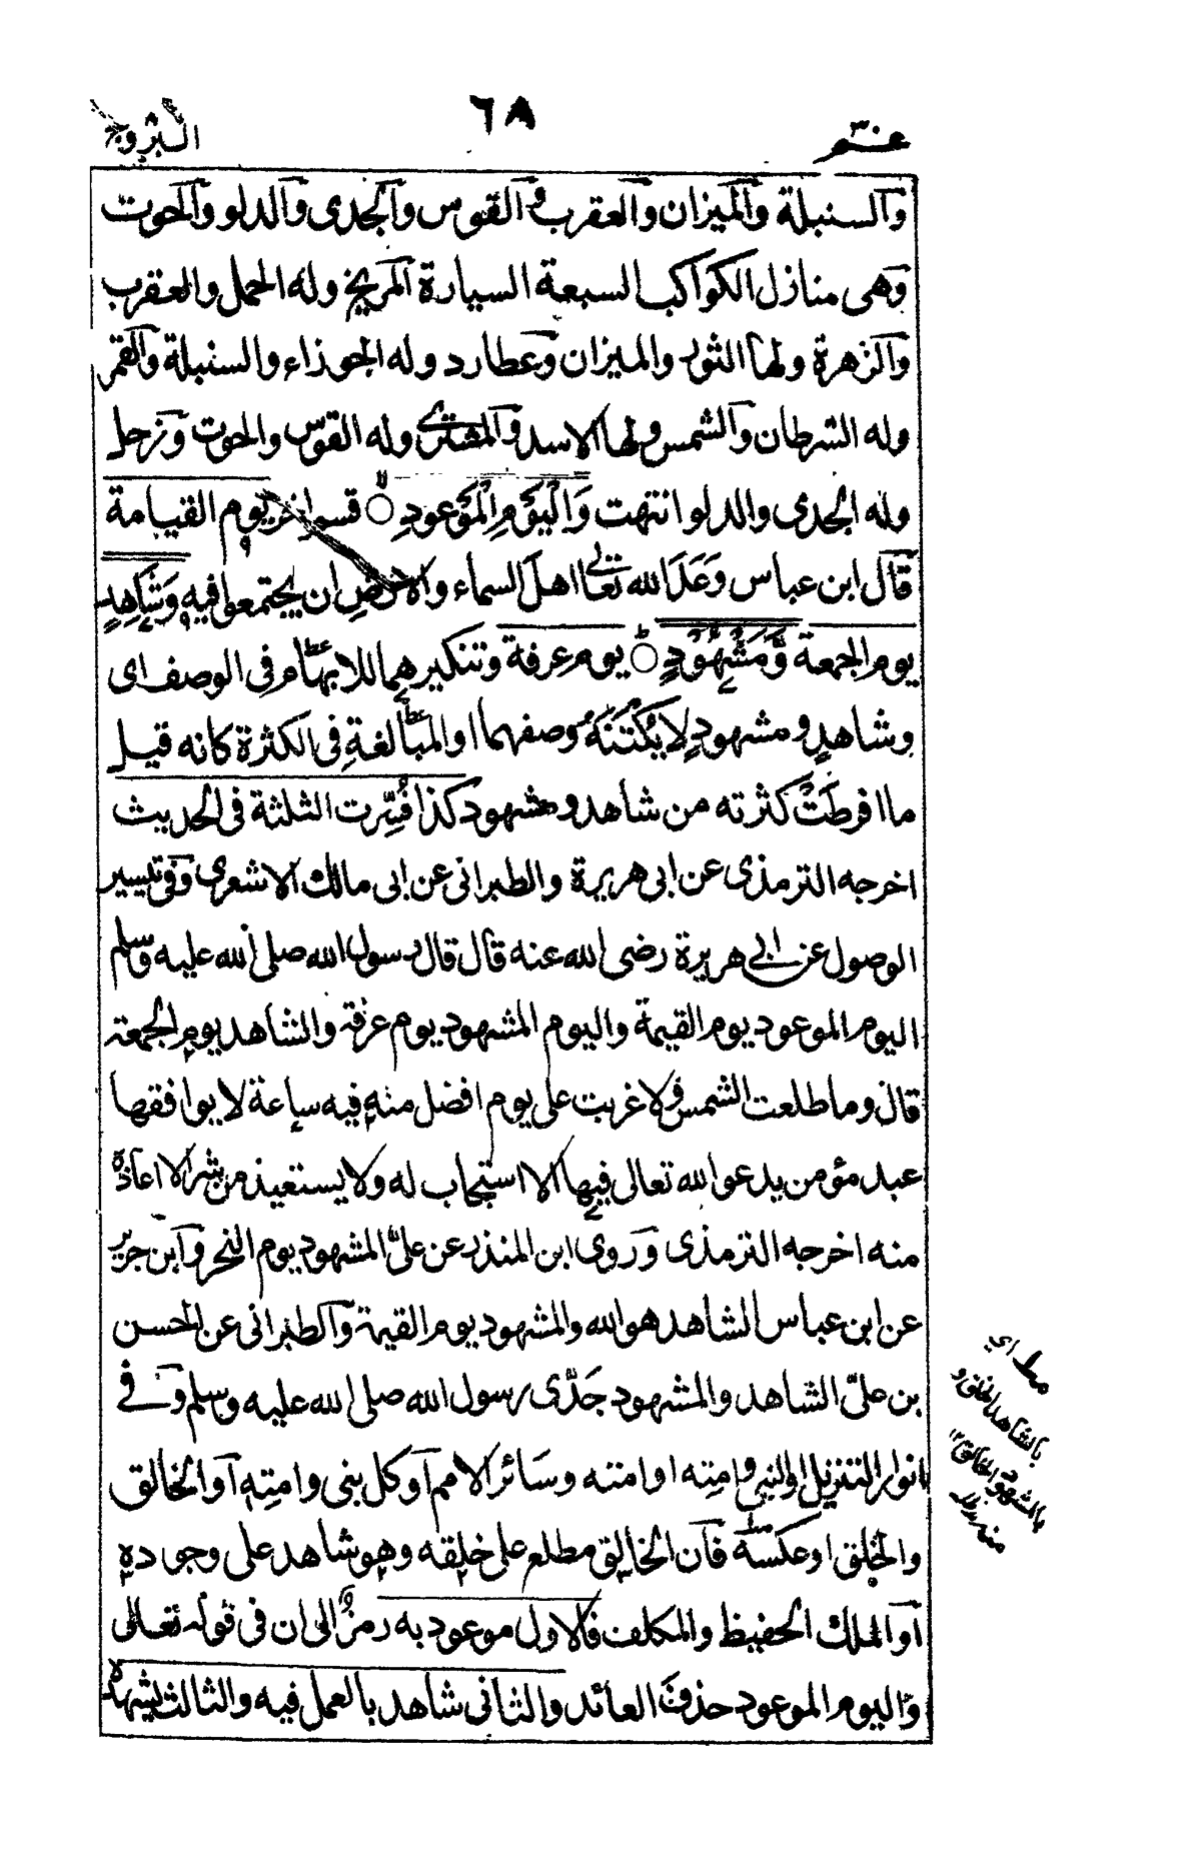 عم ٣٠
٦٨
البروج
والسنبلة والميزان والعقرب والقوس والجدى والدلو والحوت
وهى منازل الكواكب السبعة السيارة المريخ وله الحمل والعقرب
والزهرة ولها الثور والميزان وعطارد وله الجوزاء والسنبلة والقمر
وله السرطان والشمس ولها الاسد والمشترى وله القوس والحوت وزحل
وله الجدى والدلو انتهت وَالْيَوْمِ الْمَوْعُودِ ○ قسم اخر يوم القيامة
قال ابن عباس وَعَدَ الله تعالى اهل السماء والارض ان يجتمعوا فيه وَشَاهِدٍ
يوم الجمعة وَّمَشْهُودٍ ○ يوم عرفة وتنكيرهما للابهام فى الوصف اى
وشاهدٍ ومشهودٍ لا يُكْتَنَهُ وصفهما او المبالغةِ فى الكثرة كانه قيل
ما افرطَتْ كثرته من شاهد ومشهود كذا فُسِّرت الثلثة فى الحديث
اخرجه الترمذى عن ابى هريرة والطبرانى عن ابى مالك الاشعرى وفى تيسير
الوصول عن ابى هريرة رضى الله عنه قال قال رسول الله صلى الله عليه وسلم
اليوم الموعود يوم القيمة واليوم المشهود يوم عرفة والشاهد يوم الجمعة
قال وما طلعت الشمس ولا غربت على يوم افضل منه فيه ساعة لا يوافقها
عبد مؤمن يدعو الله تعالى فيها الا استجاب له ولا يستعيذ من شر الا اعاذه
منه اخرجه الترمذى وروى ابن المنذر عن علىّ المشهود يوم النحر وابن جرير
عن ابن عباس الشاهد هو الله والمشهود يوم القيمة والطبرانى عن الحسن
بن علىّ الشاهد والمشهود جَدّى رسول الله صلى الله عليه وسلم وفى
انوار التنزيل او النبى وامته او امته وسائر الامم او كل بنى وامته او الخالق
والخلق او عكسه فان الخالق مطلع على خلقه وهو شاهد على وجوده
او الملك الحفيظ والمكلف فالاول موعود به رمزٌ الى ان فى قوله تعالى
واليوم الموعود حذف العائد والثانى شاهد بالعمل فيه والثالث يشهده
مط اي
بالشاهد الخلق و
بالمشهود الخالق ١٢
منه